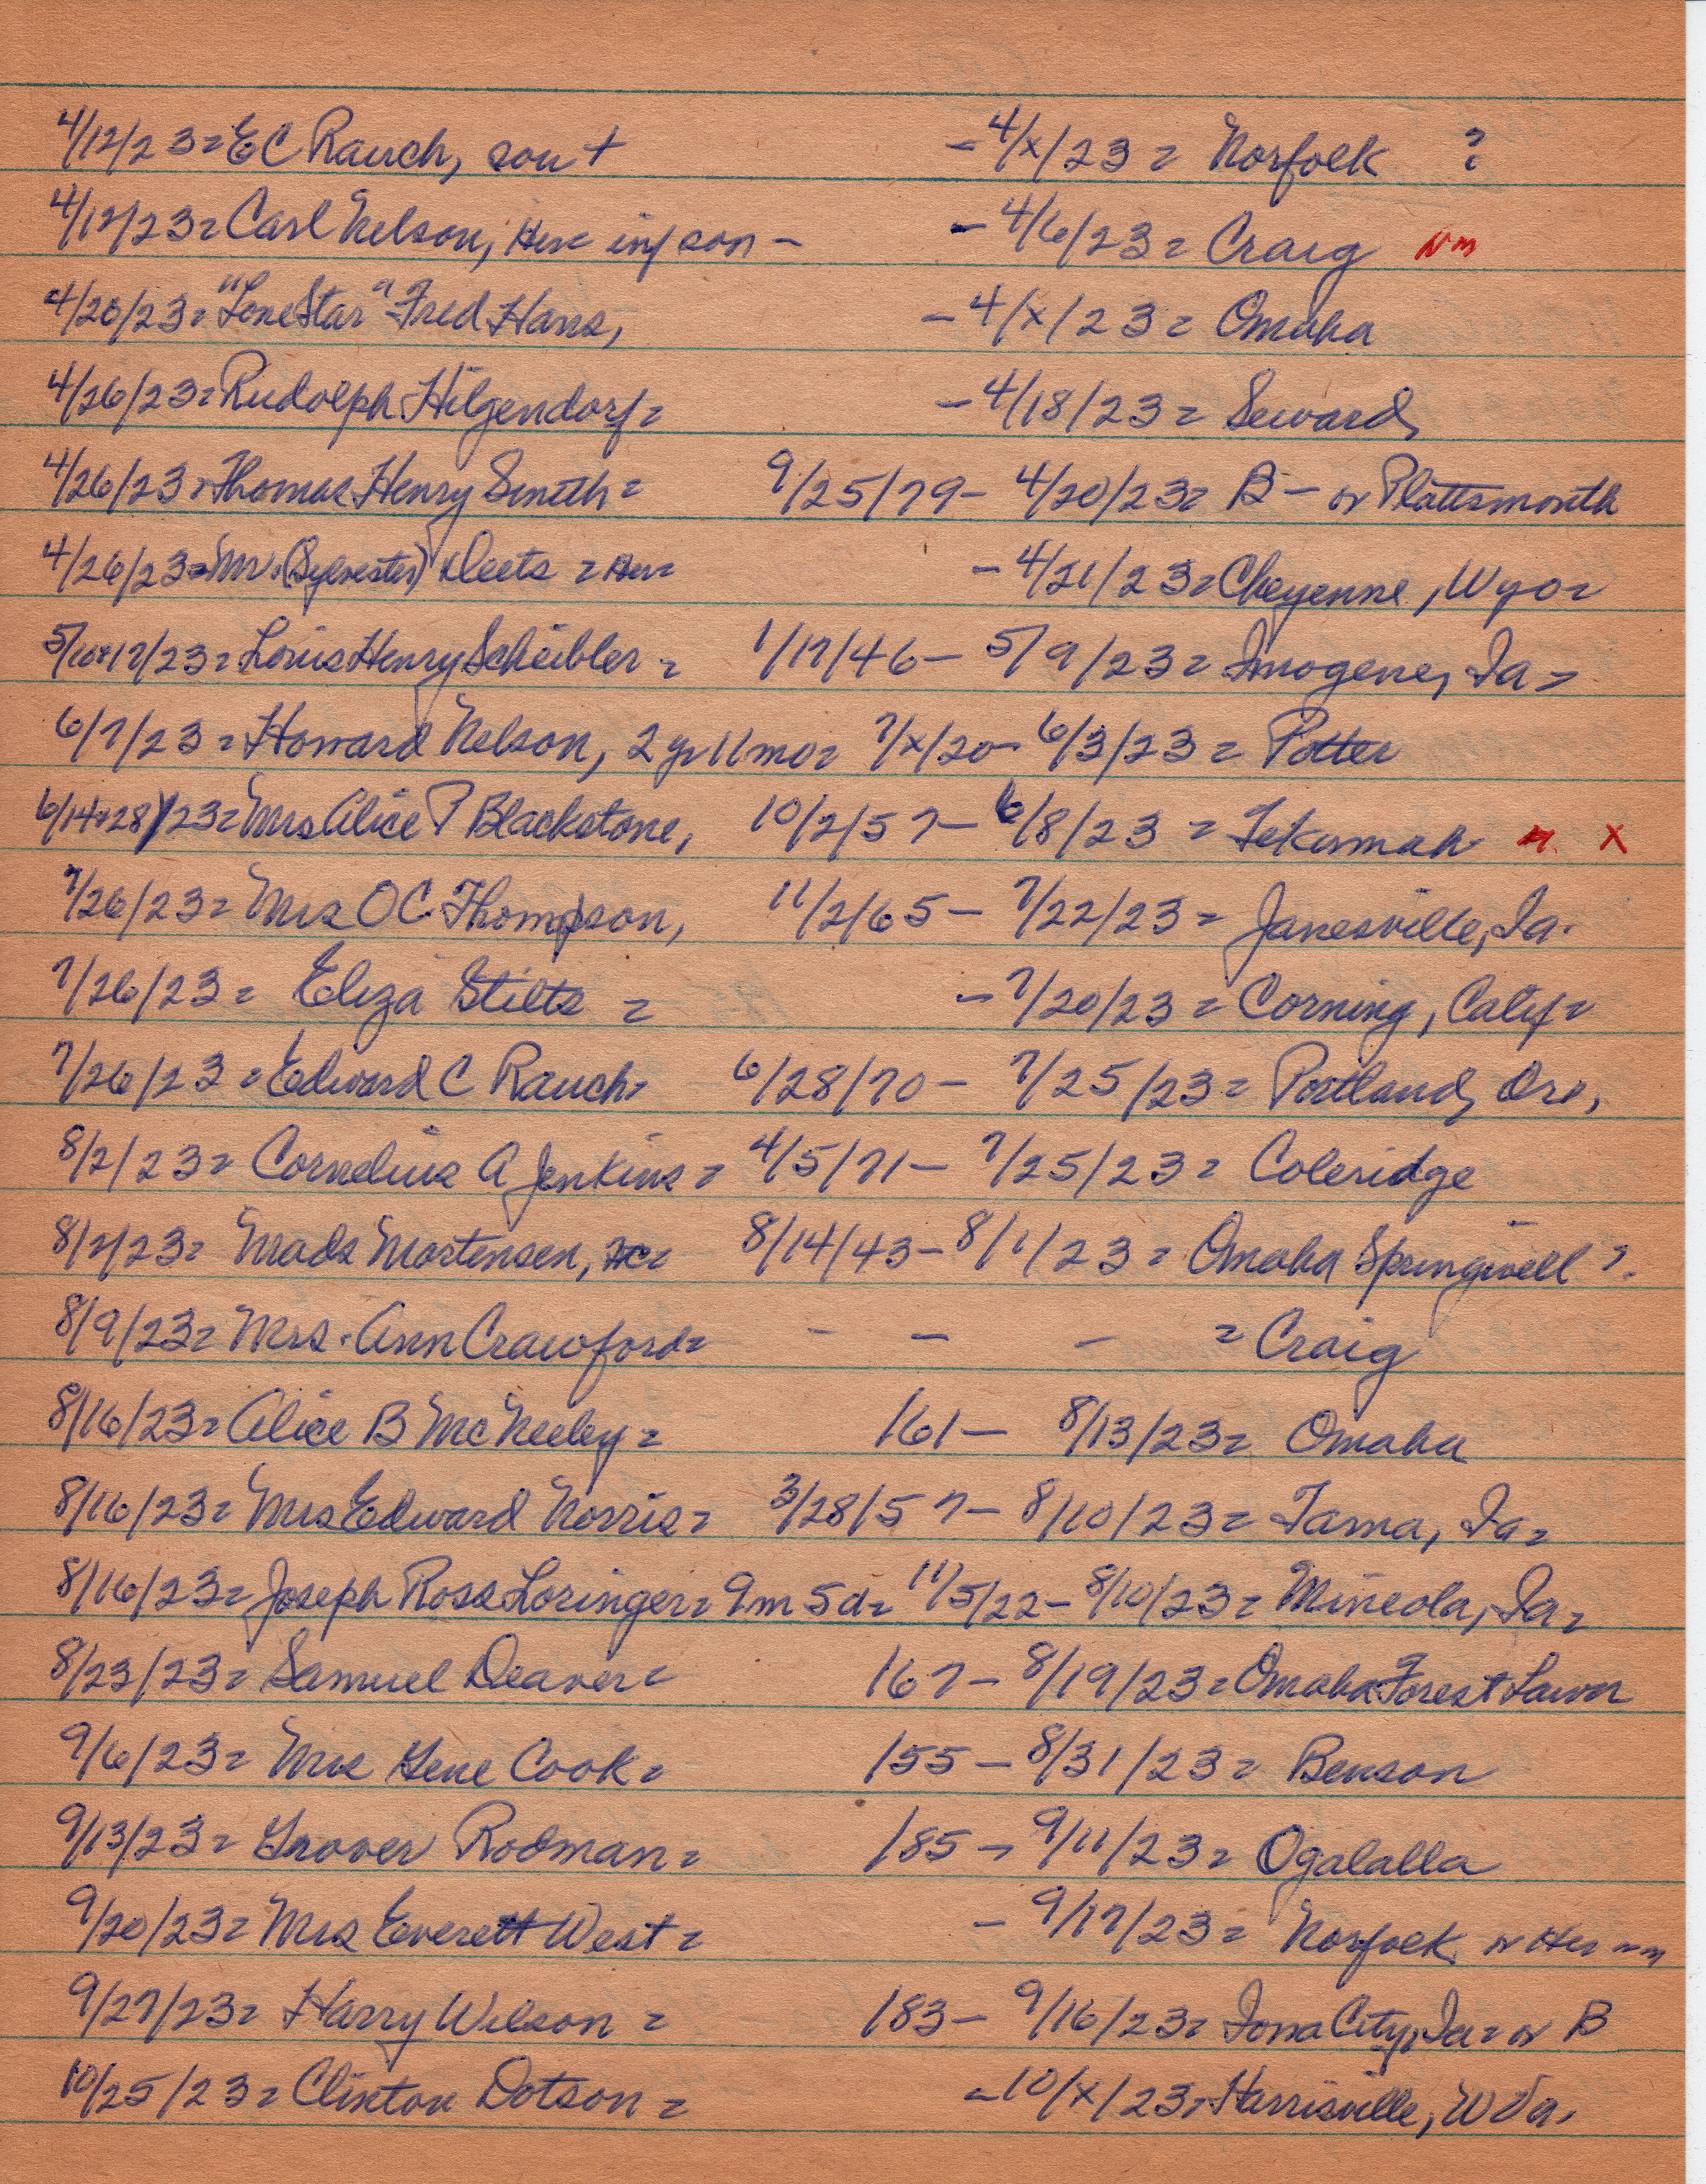 4/12/23 = E C Rauch, son + - 4/x/23 = Norfolk ?
4/12/23 = Carl Nelson, Her inf son - - 4/6/23 = Craig Nm
4/20/23 = "Lone Star" Fred Hans, - 4/x/23 = Omaha
4/26/23 = Rudolph Hilgendorf = - 4/18/23 = Seward,
4/26/23 = Thomas Henry Smith = 9/25/79 - 4/20/23 = B - or Plattsmouth
4/26/23 = Mr. (Sylvester) Deets = Her = - 4/21/23 = Cheyenne, Wyo =
5/10&17/23 = Louis Henry Scheibler = 1/17/46 - 5/9/23 = Imogene, Ia =
6/7/23 = Howard Nelson, 2 yr 11 mo = 7/x/20 - 6/3/23 = Potter
6/14&28/23 = Mrs Alice P Blackstone, 10/2/57 - 6/8/23 = Tekamah n. X
7/26/23 = Mrs O C Thompson, 11/2/65 - 7/22/23 = Janesville, Ia.
7/26/23 = Eliza Stilts = - 7/20/23 = Corning, Calif =
7/26/23 = Edward C Rauch = 6/28/70 - 7/25/23 = Portland, Ore,
8/2/23 = Cornelius A Jenkins = 4/5/71 - 7/25/23 = Coleridge
8/2/23 = Mads Mortensen, 8/14/43 - 8/1/23 = Omaha Springwell ?
8/9/23 = Mrs. Ann Crawford = - - - = Craig
8/16/23 = Alice B McNeeley = /61 - 8/13/23 = Omaha
8/16/23 = Mrs Edward Norris = 3/28/57 - 8/10/23 = Tama, Ia =
8/16/23 = Joseph Ross Loringer = 9m 5d = 11/5/22 - 8/10/23 = Mineola, Ia =
8/23/23 = Samuel Deaver = /67 - 8/19/23 = Omaha Forest Lawn
9/6/23 = Mrs Gene Cook = /55 - 8/31/23 = Benson
9/13/23 = Grover Rodman = /85 - 9/11/23 = Ogalalla
9/20/23 = Mrs Everett West = - 9/17/23 = Norfolk or Her nm
9/27/23 = Harry Wilson = /83 - 9/16/23 = Iowa City, Ia = or B
10/25/23 = Clinton Dotson = - 10/x/23 = Harrisville, W Va.